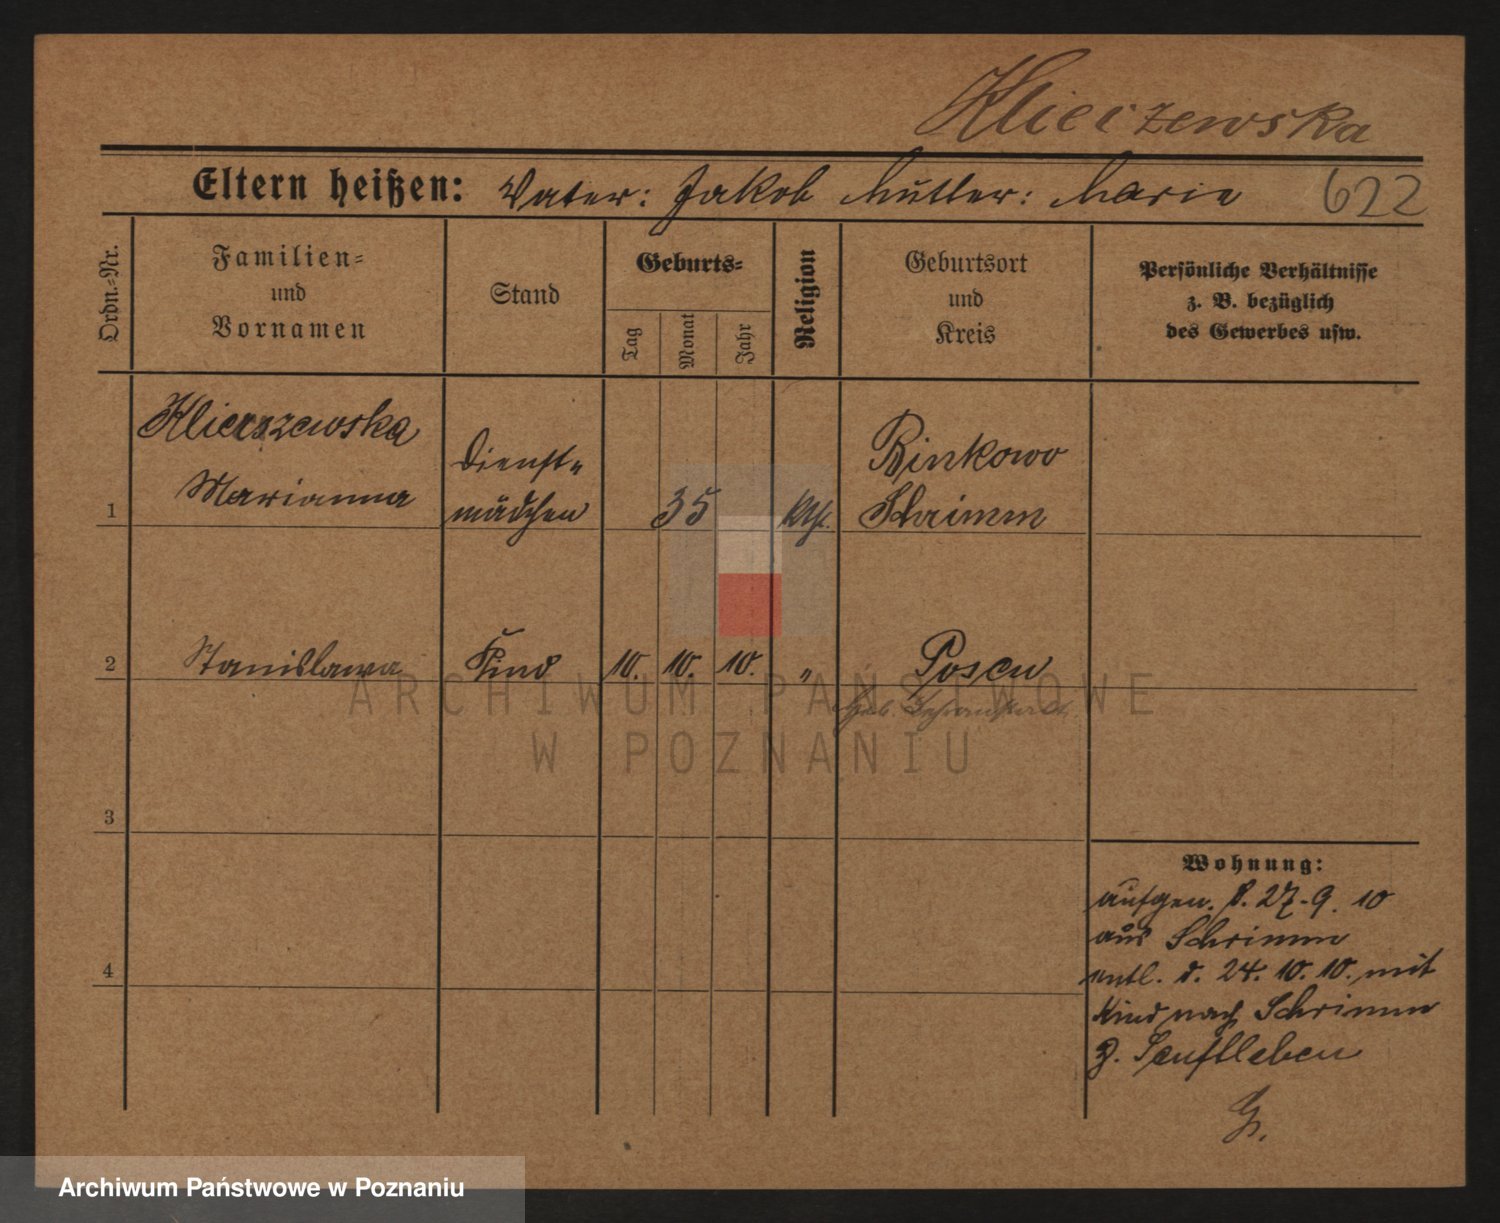 Klieczewska
Eltern heißen: Vater: Jakob Mutter: Marie 622
Ordn.-Nr.
Familien-
und
Vornamen
Stand
Geburts-
Tag
Monat
Jahr
Religion
Geburtsort
und
Kreis
Persönliche Verhältnisse
z. B. bezüglich
des Gewerbes usw.
Marianna
Dienst-
mädchen
1
35
kth.
Rinkowo
Schrimm
2 Stanislawa Kind 10. 10. 10. " Posen
Geb.
3
4
Wohnung:
aufgen. d. 27.9.10
aus Schrimm
entl. d. 24.10.10. mit
Kind nach Schrimm
z. Senftleben
G.
ARCHIWUM PAŃSTWOWE
W POZNANIU
Archiwum Państwowe w Poznaniu